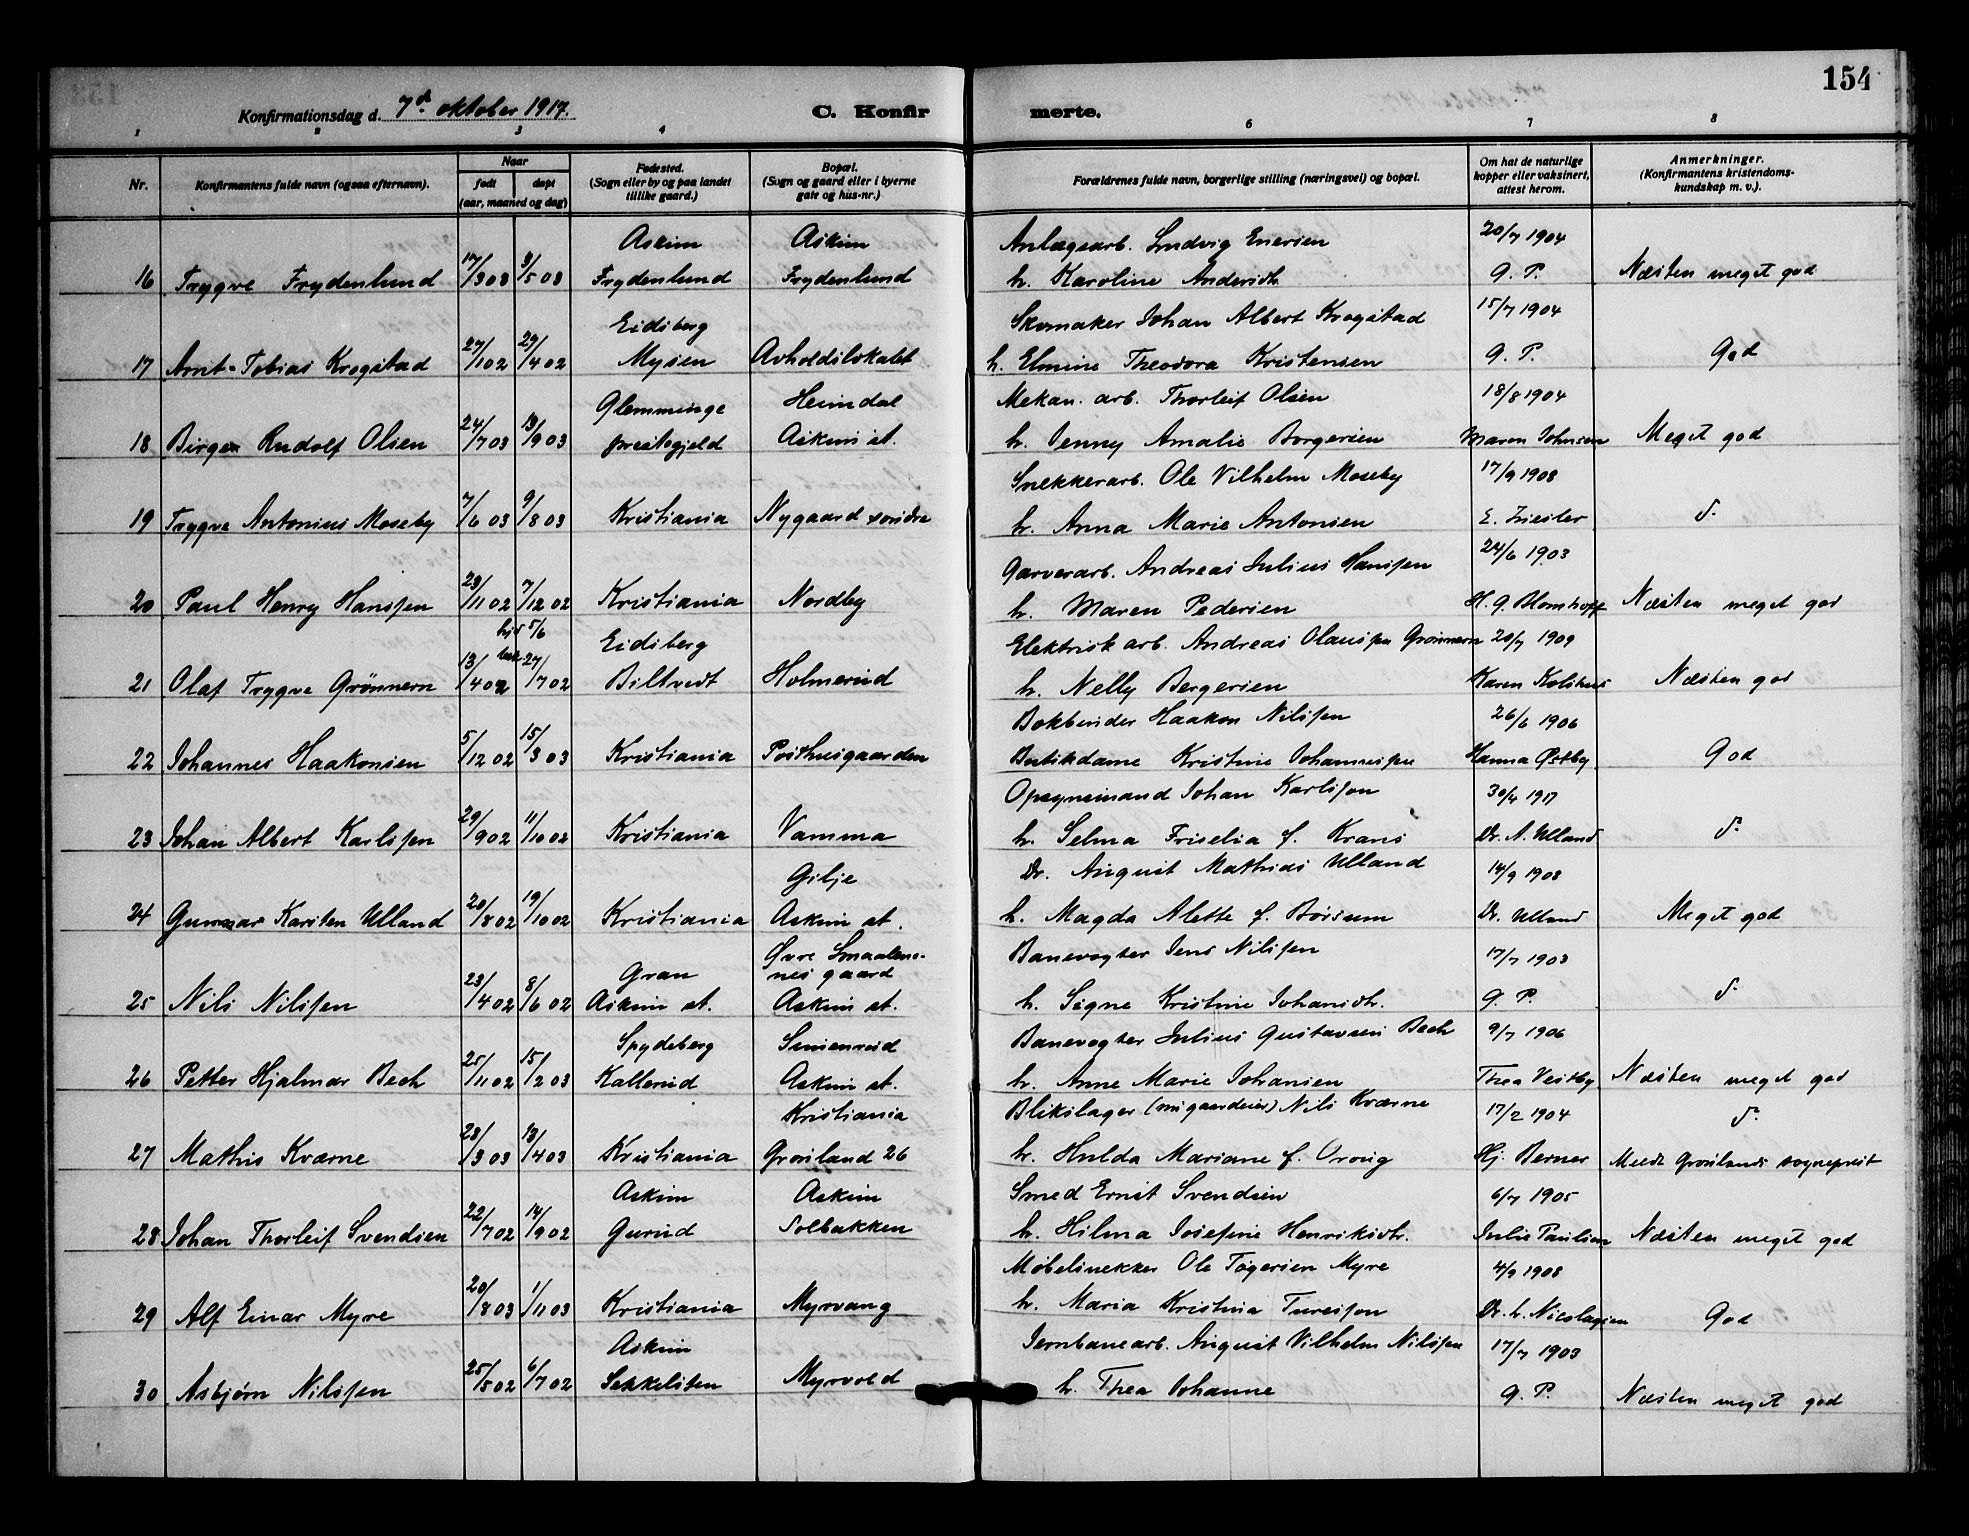 154
Konfirmationsdag d. 7de oktober 1917.
C. Konfir merte.
1 2 3 4 6 7 8
Nr.
Konfirmantens fulde navn (ogsaa efternavn).
Naar
født døpt
(aar, maaned og dag)
Fødested.
(Sogn eller by og paa landet
tillike gaard.)
Bopæl.
(Sogn og gaard eller i byerne
gate og hus-nr.)
Forældrenes fulde navn, borgerlige stilling (næringsvei) og bopæl.
Om hat de naturlige
kopper eller vaksinert,
attest herom.
Anmerkninger.
(Konfirmantens kristendoms-
kundskap m. v.).
Askim Askim Anlægsarb. Ludvig Enersen 20/7 1904
16 Trygve Frydenlund 17/3 03 3/5 03 Frydenlund Frydenlund h. Karoline Andersdtr. G. P. Næsten meget god
Eidsberg Skomaker Johan Albert Krogstad 15/7 1904
17 Arnt Tobias Krogstad 27/1 02 29/4 02 Mysen Avholdslokalet h. Elmine Theodora Kristensen G. P. God
Glemminge Heimdal Mekan. arb. Thorleif Olsen 18/8 1904
18 Birger Rudolf Olsen 24/7 03 13/9 03 prestegjeld Askim st. h. Jenny Amalie Borgersen Maren Johnsen Meget god
Snekkerarb. Ole Vilhelm Moseby 17/9 1908
19 Trygve Antonius Moseby 7/6 03 9/8 03 Kristiania Nygaard søndre h. Anna Marie Antonsen E. Ziesler d.
Garverarb. Andreas Julius Hanssen 24/6 1903
20 Paul Henry Hanssen 23/11 02 7/12 02 Kristiania Nordby h. Maren Pedersen H. G. Blomhoff Næsten meget god
hjd 5/6 Eidsberg Elektrisk arb. Andreas Olaussen Grønnern 20/7 1909
21 Olaf Trygve Grønnern 13/4 02 27/7 02 Biltvedt Holmerud h. Nelly Bergersen Karen Kolshus Næsten god
Bokbinder Haakon Nilssen 26/6 1906
22 Johannes Haakonsen 5/12 02 15/3 03 Kristiania Posthusgaarden Butikdame Kristine Johannessen Hanna Østby God
Opsynsmand Johan Karlsson 30/4 1917
23 Johan Albert Karlssen 29/9 02 11/10 02 Kristiania Vamma h. Selma Friselia f. Krans Dr. A. Ulland d.
Gilje Dr. August Mathias Ulland 14/9 1908
24 Gunnar Karsten Ulland 20/8 02 19/10 02 Kristiania Askim st. h. Magda Alette f. Børsum Dr. Ulland Meget god
Gran Øvre Smaalene-
nes gaard Banevogter Jens Nilssen 17/7 1903
25 Nils Nilssen 23/4 02 8/6 02 Askim st. Askim st. h. Signe Kristine Johansdtr. G. P. d.
Spydeberg Simenrud Banevogter Julius Gustavsen Bech 9/7 1906
26 Petter Hjalmar Bech 25/11 02 15/2 03 Kallerud Askim st. h. Anne Marie Johansen Thea Vestby Næsten meget god
Kristiania Blikslager (nu gaardeier) Nils Kværne 17/2 1904 d.
27 Mathis Kværne 23/3 03 13/4 03 Kristiania Grønland 26 h. Hulda Mariane f. Oroug Hj. Berner Meldt Grønlands sogneprest
Askim Askim Smed Ernst Svendsen 6/7 1905
28 Johan Thorleif Svendsen 22/7 02 14/9 02 Gurud Solbakken h. Hilma Josefine Henriksdtr. Julie Paulsen Næsten meget god
Møbelsnekker Ole Tøgersen Myre 4/9 1908
29 Alf Einar Myre 20/8 03 1/11 03 Kristiania Myrvang h. Maria Kristina Turesson Dr. L. Nicolaysen God
Askim Jernbanearb. August Vilhelm Nilssen 17/7 1903
30 Asbjørn Nilssen 25/5 02 6/7 02 Sekkelsten Myrvold h. Thea Johanne G. P. Næsten meget god